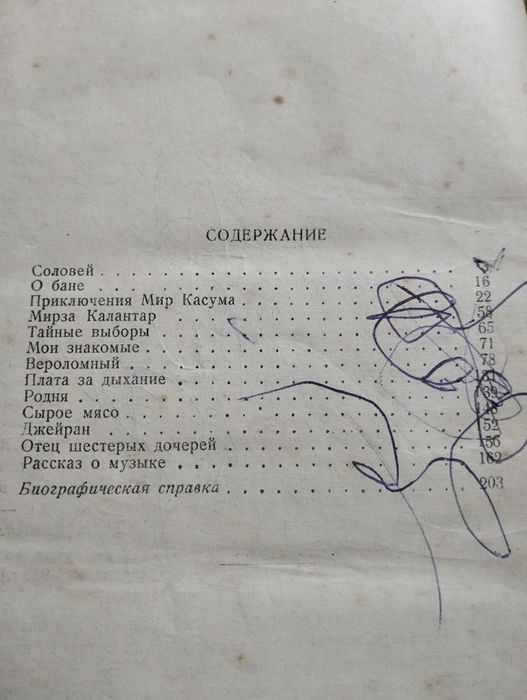 СОДЕРЖАНИЕ
Соловей . . . . . . . . . . . . . . . . .
О бане . . . . . . . . . . . . . . . . . 16
Приключения Мир Касума . . . . . . . . . 22
Мирза Калантар . . . . . . . . . . . . . 58
Тайные выборы . . . . . . . . . . . . . 65
Мои знакомые . . . . . . . . . . . . . . 71
Вероломный . . . . . . . . . . . . . . . 78
Плата за дыхание . . . . . . . . . . . . 131
Родня . . . . . . . . . . . . . . . . . 139
Сырое мясо . . . . . . . . . . . . . . . 148
Джейран . . . . . . . . . . . . . . . . 152
Отец шестерых дочерей . . . . . . . . . 156
Рассказ о музыке . . . . . . . . . . . . 162
Биографическая справка . . . . . . . . . 203